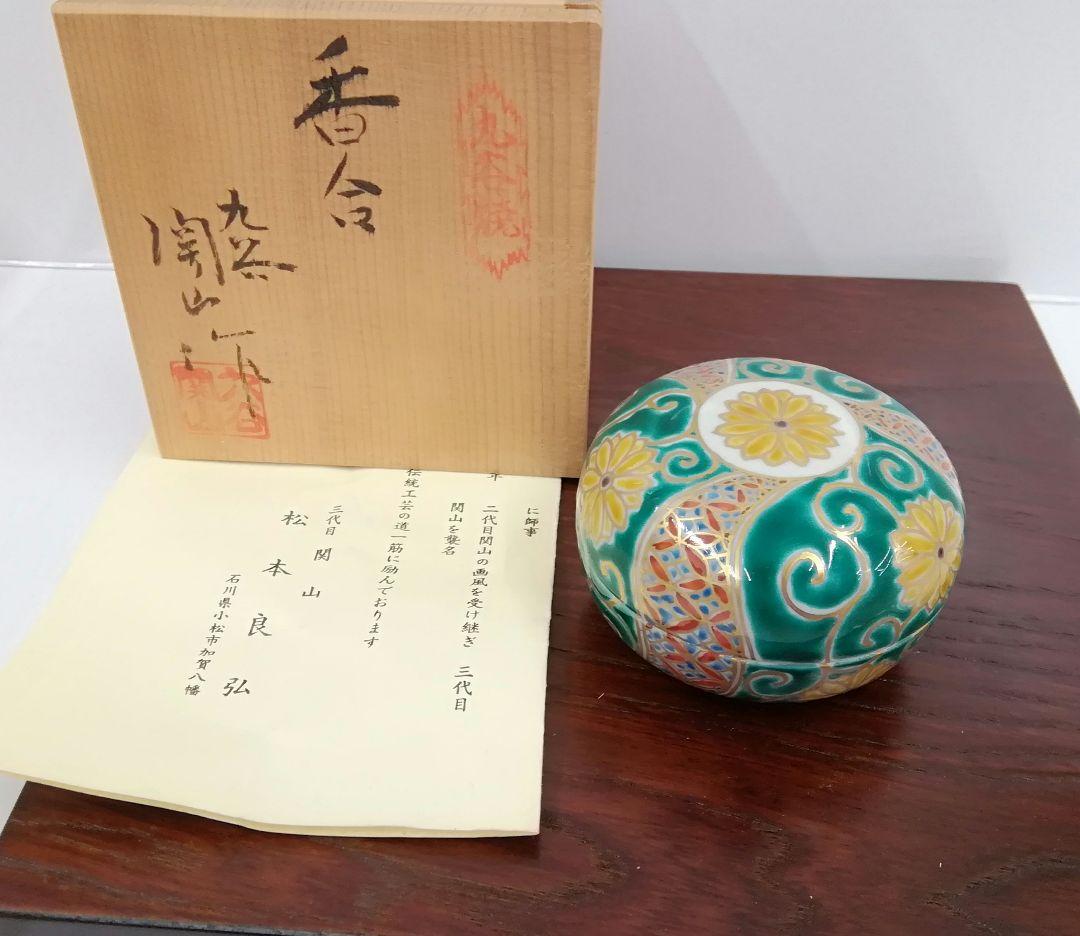 香合
九谷
関山作
九谷焼
に師事
年 二代目関山の画風を受け継ぎ 三代目
関山を襲名
伝統工芸の道一筋に励んでおります
三代目 関山
松本良弘
石川県小松市加賀八幡